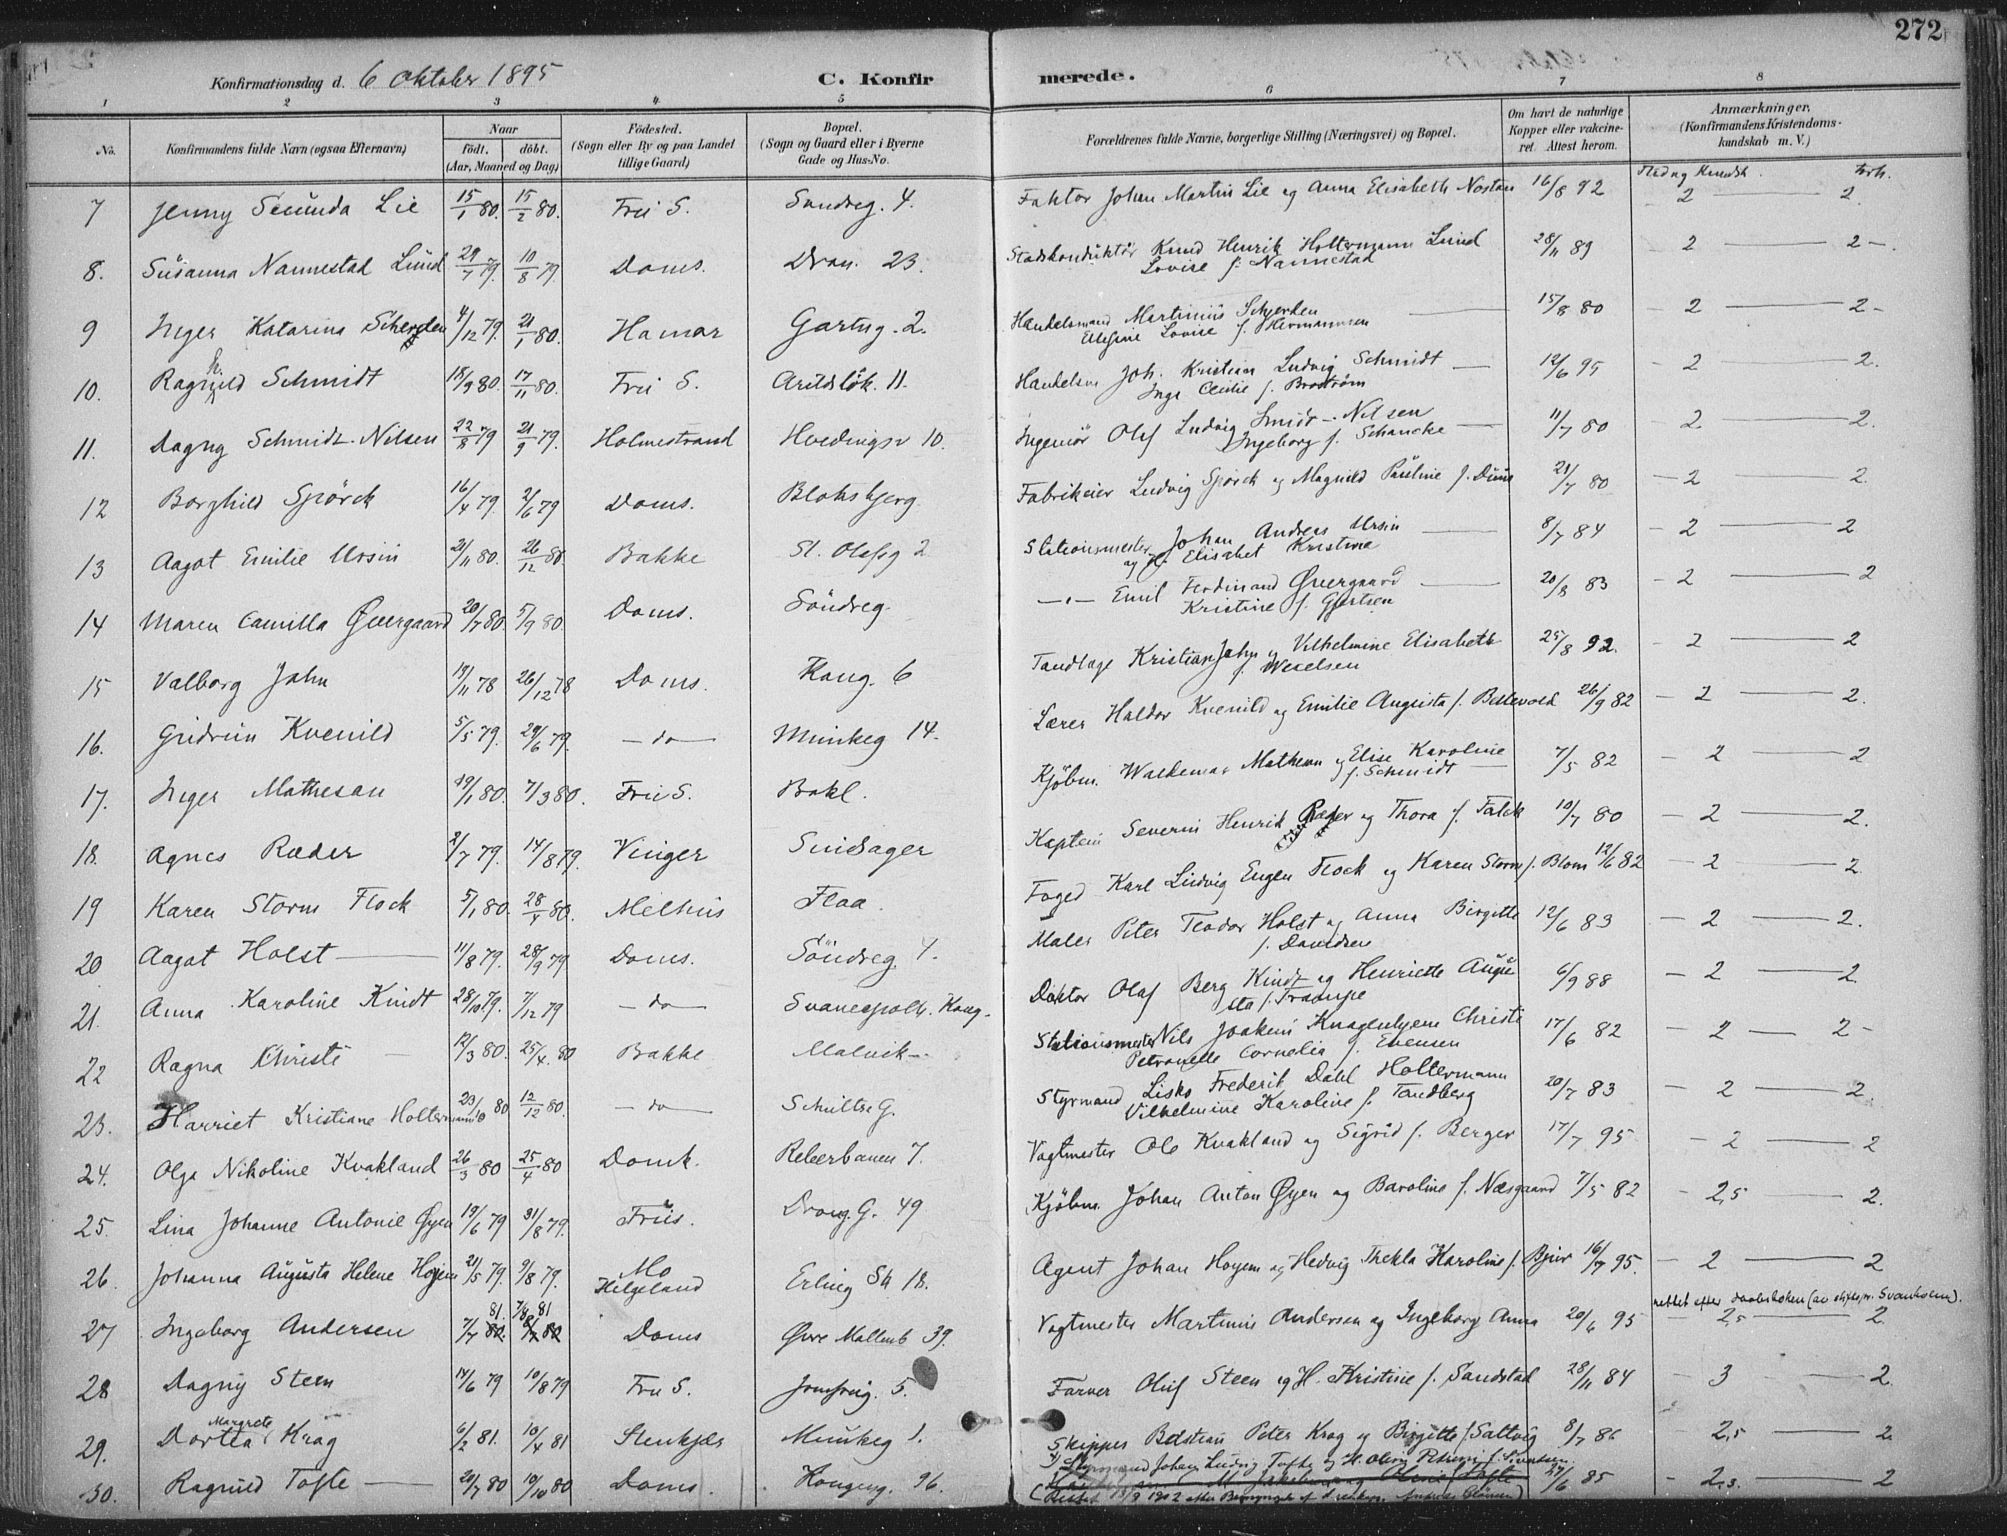 272
Konfirmationsdag d. 6 Oktober 1895 C. Konfirmerede.
1 2 3 4 5 6 7 8
No. Konfirmandens fulde Navn (ogsaa Efternavn) Naar födt. döbt. (Aar, Maaned og Dag) Födested. (Sogn eller By og paa Landet tillige Gaard) Bopæl. (Sogn og Gaard eller i Byerne Gade og Hus-No. Forældrenes fulde Navne, borgerlige Stilling (Næringsvei) og Bopæl. Om havt de naturlige Kopper eller vakcineret. Attest herom. Anmærkninger. (Konfirmandens Kristendomskundskab m. V.)
7 Jenny Secunda Lie 15/1 80. 15/2 80. Frü S. Sandveg. 4. Faktor Johan Martin Lie og Anna Elisabeth Nostan 16/8 92 2 — 2.
8. Susanna Nannestad Lund 29/7 79. 10/8 79. Doms. Dron. 23. Stadskonduktör Knud Henrik Holtermann Lund 28/11 89 2 — 2 —.
Lovise f. Nannestad
9 Inger Katarina Scherden 4/12 79. 21/1 80. Hamar Gartng. 2. Handelsmand Martinus Schjerden 15/8 80 2 — 2 -
Lovise f. Hermannsen
10. Ragnhild Schmidt 18/9 80. 17/11 80. Frü S. Arildslök. 11. Handelsm Joh. Kristian Ludvig Schmidt — 12/6 95 - 2 — 2.
Inga Cecilie f. Broström
11. Dagny Schmidt-Nilsen 22/8 79 21/9 79. Holmestrand Hvedingsv 10. Ingeniör Olaf Ludvig Smidt-Nilsen 11/7 80 2 — 2.
Ingeborg f. Schancke
12 Borghild Spörck 16/4 79. 2/6 79 Doms. Bloksbjerg Fabrikeier Ludvig Spörck og Magnild Pauline f. Duus 21/7 80 - 2 — 2
13 Aagot Emilie Ursin 21/11 80. 26/12 80. Bakke St. Olafsg 2 Stationsmester Johan Andreas Ursin — 8/7 84 - 2 — 2
og Elisabet Kristina
14 Maren Camilla Øvergaard 20/7 80. 5/9 80. Doms. Söndreg. —"— Emil Ferdinand Øvergaard — 20/8 83 - 2 — 2
Kristine f. Gjertsen
15 Valborg Jahn 19/11 78 26/12 78 Doms. Kong. 6 Tandlæge Kristian Jahn og Vilhelmine Elisabeth 25/8 92. - 2 — 2
f. Wexelsen
16. Gudrun Kvenild 5/5 79. 29/6 79. — do — Munkeg 14. Lærer Haldor Kvenild og Emilie Augusta f. Bellevold 26/9 82 - 2 — 2.
17. Inger Mathesan 19/1 80. 7/3 80. Frü S. Bakl. Kjöbm. Waldemar Mathesan og Elise Karoline 7/5 82 - 2 — 2
f. Schmidt
18. Agnes Ræder 2/7 79. 14/8 79. Vinger Sindsager Kaptein Severin Henrik Ræder og Thora f. Falck 19/7 80 - 2 — 2.
19 Karen Storm Flock 5/1 80. 28/4 80. Melhus Flaa. Foged Karl Ludvig Eugen Flock og Karen Storm f. Blom 12/6 82 - 2 — 2.
20. Aagot Holst — 11/8 79. 28/9 79 Doms. Söndreg 4. Maler Peter Teodor Holst og Anna Birgitte 12/6 83 - 2 — 2.
f. Davidsen
21. Anna Karoline Kindt 28/10 79. 7/12 79 — do — Svaneapoth. Kong. Doktor Olaf Berg Kindt og Henriette Augu 6/9 88 - 2 — 2.
sta f. Trampe
22 Ragna Christi 12/3 80. 25/4. 80 Bakke Malvik — Stationsmester Nils Joakim Knagenhjem Christi 17/6 82 - 2 — 2 -
Petronelle Cornelia f. Evensen
23. Harriet Kristiane Holtermann 23/10 80 12/12 80. — do — Schultz G. Styrmand Lisko Frederik Dahl Holtermann 20/7 83 - 2 — 2
Vilhelmine Karoline f. Tandberg
24. Olga Nikoline Kvakland 26/3 80 25/4 80 Domk. Reberbanen 7. Vagtmester Ole Kvakland og Sigrid f. Berger 17/7 95 - 2 — 2
25. Lina Johanne Antonie Øyen 19/6 79 31/8 79. Früs. Drong. G. 49 Kjöbm. Johan Anton Øyen og Baroline f. Næsgaard 7/5 82 - 2,5 — 2.
26. Johanna Augusta Helene Hojem 21/5 79. 9/8 79. Mo Helgeland Erling Sk 18. Agent Johan Hoyem og Hedvig Thekla Karoline f. Bjur 16/7 95. - 2 — 2
rettet efter daabsboken (av Svanholm).
27 Ingeborg Andersen 7/7 81. 80. 7/8 81 80 Doms Øvre Mollenb 39. Vagtmester Martinus Andersen og Ingeborg Anna 20/6 95 - 2,5 — 2
28 Dagny Steen 14/6 79 10/8 79 Frü S. Jomfrug. 5. Farver Oluf Steen og H. Kristine f. Sandstad 28/11 84 - 3 — 2.
29. Dortea Margrete Krag 6/2 81. 10/4 81 Stenkjær Munkeg 1. Skipper Peter Krag og Birgitte f. Saltvig 8/7 86 2,5 — 2.
Styrmand Johan Ludvig Tofte og
30. Ragnild Tofte — 20/7 80 10/10 80 Doms. Kongensg. 96. 27/6 85 - 2,3. — 2